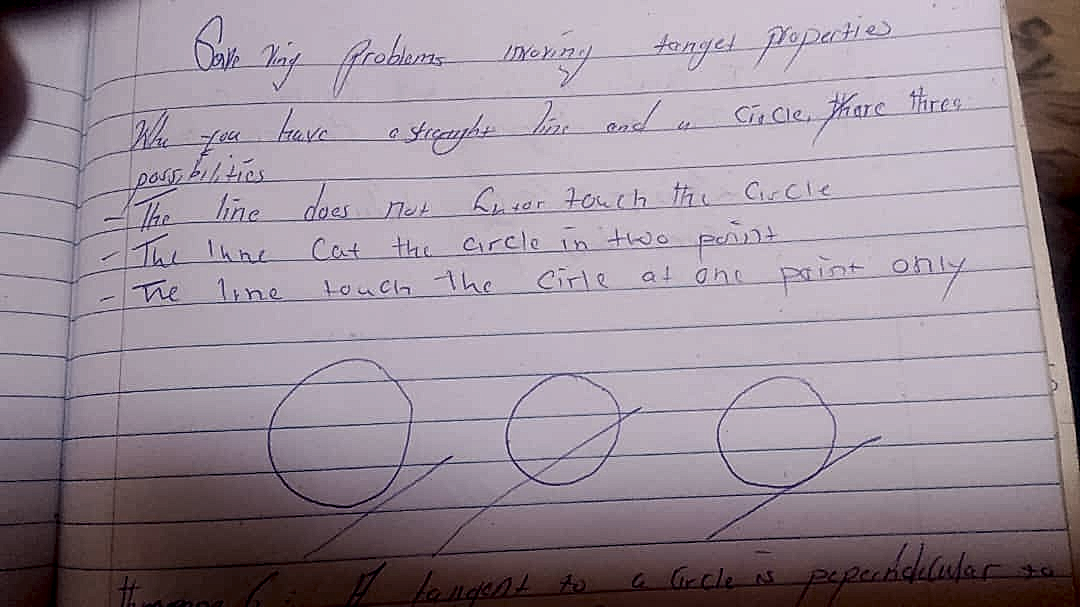 Problems tanget properties
you have a straight line and a circle, there three
possibilities
- The line does not touch the Circle
- The line Cat the circle in two point
- The line touch the Cirle at one point only
A tangent to a Circle is to